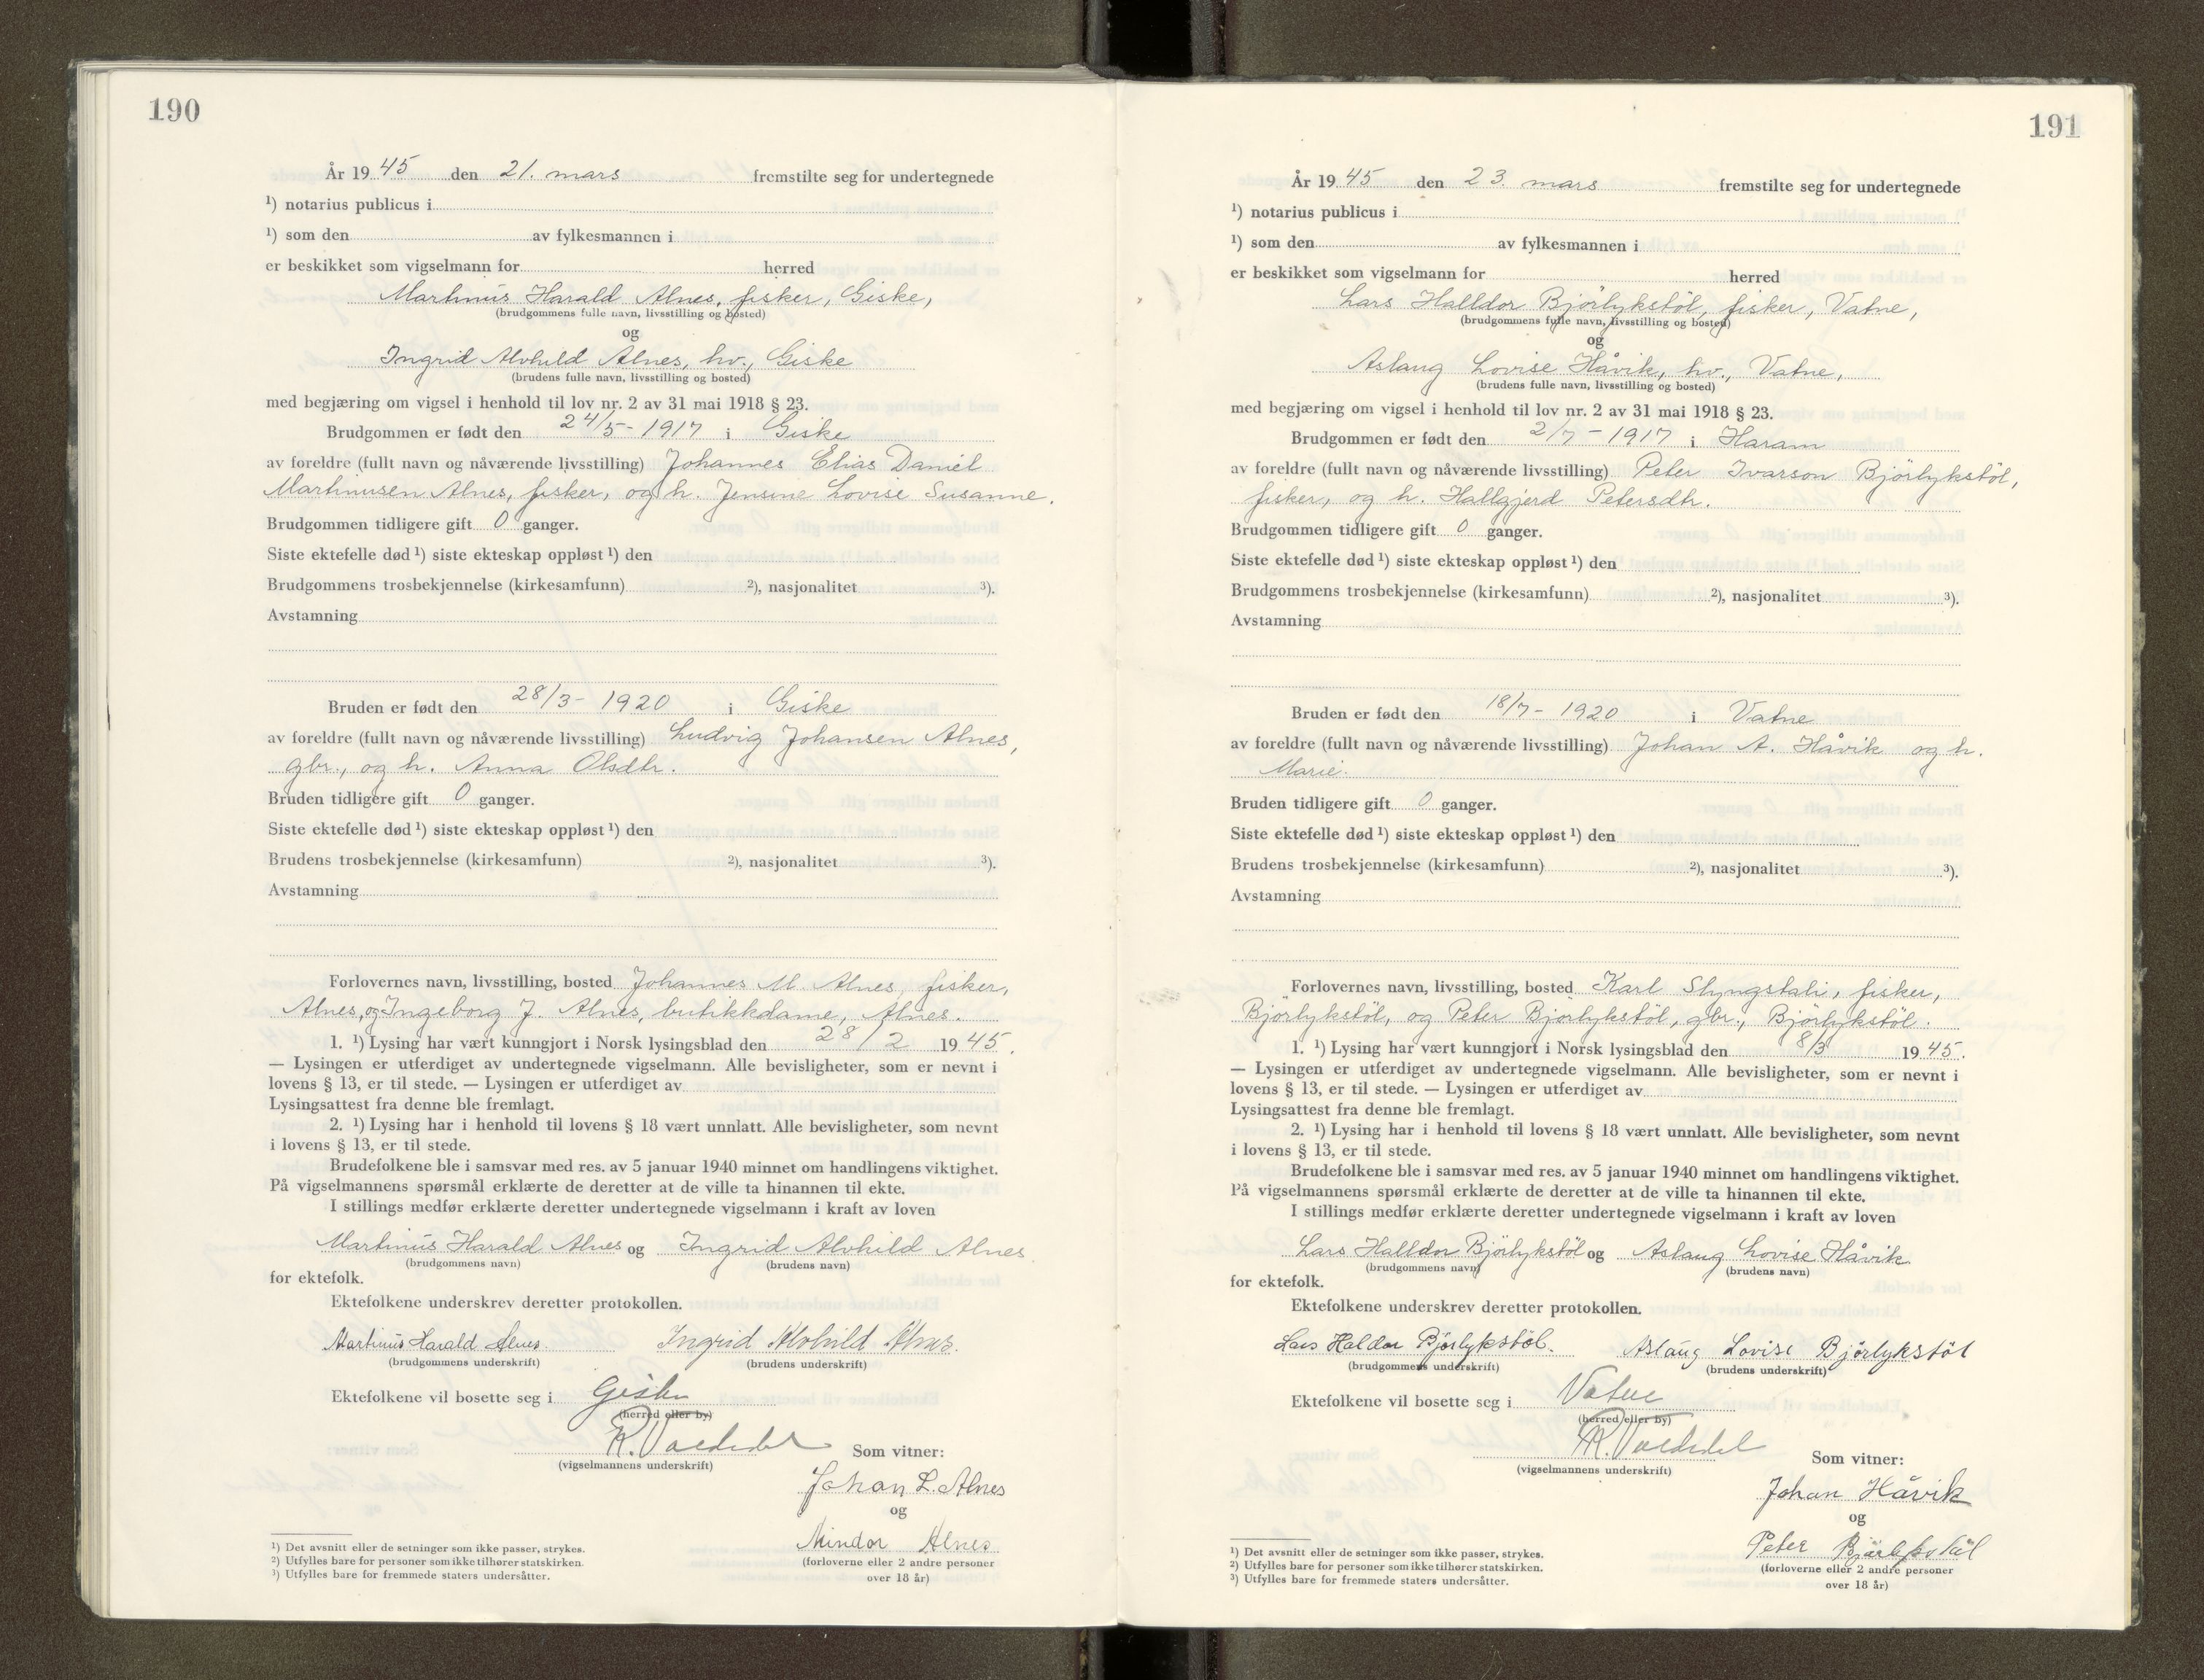 190
År 1945 den 21. mars fremstilte seg for undertegnede
¹) notarius publicus i
¹) som den av fylkesmannen i
er beskikket som vigselmann for herred
Martinus Harald Alnes, fisker, Giske,
(brudgommens fulle navn, livsstilling og bosted)
og
Ingrid Alvhild Alnes, hv., Giske
(brudens fulle navn, livsstilling og bosted)
med begjæring om vigsel i henhold til lov nr. 2 av 31 mai 1918 § 23.
Brudgommen er født den 24/5 - 1917 i Giske
av foreldre (fullt navn og nåværende livsstilling) Johannes Elias Daniel
Martinusen Alnes, fisker, og h. Jensine Lovise Susanne.
Brudgommen tidligere gift 0 ganger.
Siste ektefelle død ¹) siste ekteskap oppløst ¹) den
Brudgommens trosbekjennelse (kirkesamfunn) ²), nasjonalitet ³).
Avstamning
Bruden er født den 28/3 - 1920 i Giske
av foreldre (fullt navn og nåværende livsstilling) Ludvig Johansen Alnes,
gbr., og h. Anna Olsdtr.
Bruden tidligere gift 0 ganger.
Siste ektefelle død ¹) siste ekteskap oppløst ¹) den
Brudens trosbekjennelse (kirkesamfunn) ²), nasjonalitet ³).
Avstamning
Forlovernes navn, livsstilling, bosted Johannes M. Alnes, fisker,
Alnes, og Ingeborg J. Alnes, butikkdame, Alnes.
1. ¹) Lysing har vært kunngjort i Norsk lysingsblad den 28/2 1945.
— Lysingen er utferdiget av undertegnede vigselmann. Alle bevisligheter, som er nevnt i
lovens § 13, er til stede. — Lysingen er utferdiget av
Lysingsattest fra denne ble fremlagt.
2. ¹) Lysing har i henhold til lovens § 18 vært unnlatt. Alle bevisligheter, som nevnt
i lovens § 13, er til stede.
Brudefolkene ble i samsvar med res. av 5 januar 1940 minnet om handlingens viktighet.
På vigselmannens spørsmål erklærte de deretter at de ville ta hinannen til ekte.
I stillings medfør erklærte deretter undertegnede vigselmann i kraft av loven
Martinus Harald Alnes og Ingrid Alvhild Alnes
(brudgommens navn) (brudens navn)
for ektefolk.
Ektefolkene underskrev deretter protokollen.
Martinus Harald Alnes. Ingrid Alvhild Alnes.
(brudgommens underskrift) (brudens underskrift)
Ektefolkene vil bosette seg i Giske
(herred eller by)
R. Som vitner:
(vigselmannens underskrift)
Johan L. Alnes
og
Mindor Alnes
(forloverne eller 2 andre personer
over 18 år)
¹) Det avsnitt eller de setninger som ikke passer, strykes.
²) Utfylles bare for personer som ikke tilhører statskirken.
³) Utfylles bare for fremmede staters undersåtter.
191
År 1945 den 23. mars fremstilte seg for undertegnede
¹) notarius publicus i
¹) som den av fylkesmannen i
er beskikket som vigselmann for herred
Lars Halldor Björlykstöl, fisker, Vatne,
(brudgommens fulle navn, livsstilling og bosted)
og
Aslaug Lovise Håvik, hv., Vatne,
(brudens fulle navn, livsstilling og bosted)
med begjæring om vigsel i henhold til lov nr. 2 av 31 mai 1918 § 23.
Brudgommen er født den 2/7 - 1917 i Haram
av foreldre (fullt navn og nåværende livsstilling) Peter Ivarson Björlykstöl,
fisker, og h. Hallgjerd Petersdtr.
Brudgommen tidligere gift 0 ganger.
Siste ektefelle død ¹) siste ekteskap oppløst ¹) den
Brudgommens trosbekjennelse (kirkesamfunn) ²), nasjonalitet ³).
Avstamning
Bruden er født den 18/7 - 1920 i Vatne
av foreldre (fullt navn og nåværende livsstilling) Johan A. Håvik og h.
Marie.
Bruden tidligere gift 0 ganger.
Siste ektefelle død ¹) siste ekteskap oppløst ¹) den
Brudens trosbekjennelse (kirkesamfunn) ²), nasjonalitet ³).
Avstamning
Forlovernes navn, livsstilling, bosted Karl Slyngstali, fisker,
Björlykstöl, og Peter Björlykstöl, gbr., Björlykstöl.
1. ¹) Lysing har vært kunngjort i Norsk lysingsblad den 8/3 1945.
— Lysingen er utferdiget av undertegnede vigselmann. Alle bevisligheter, som er nevnt i
lovens § 13, er til stede. — Lysingen er utferdiget av
Lysingsattest fra denne ble fremlagt.
2. ¹) Lysing har i henhold til lovens § 18 vært unnlatt. Alle bevisligheter, som nevnt
i lovens § 13, er til stede.
Brudefolkene ble i samsvar med res. av 5 januar 1940 minnet om handlingens viktighet.
På vigselmannens spørsmål erklærte de deretter at de ville ta hinannen til ekte.
I stillings medfør erklærte deretter undertegnede vigselmann i kraft av loven
Lars Halldor Björlykstöl og Aslaug Lovise Håvik
(brudgommens navn) (brudens navn)
for ektefolk.
Ektefolkene underskrev deretter protokollen.
Lars Haldor Björlykstöl. Aslaug Lovise Björlykstöl
(brudgommens underskrift) (brudens underskrift)
Ektefolkene vil bosette seg i Vatne
(herred eller by)
R. Som vitner:
(vigselmannens underskrift)
Johan Håvik
og
Peter Björlykstöl
(forloverne eller 2 andre personer
over 18 år)
¹) Det avsnitt eller de setninger som ikke passer, strykes.
²) Utfylles bare for personer som ikke tilhører statskirken.
³) Utfylles bare for fremmede staters undersåtter.